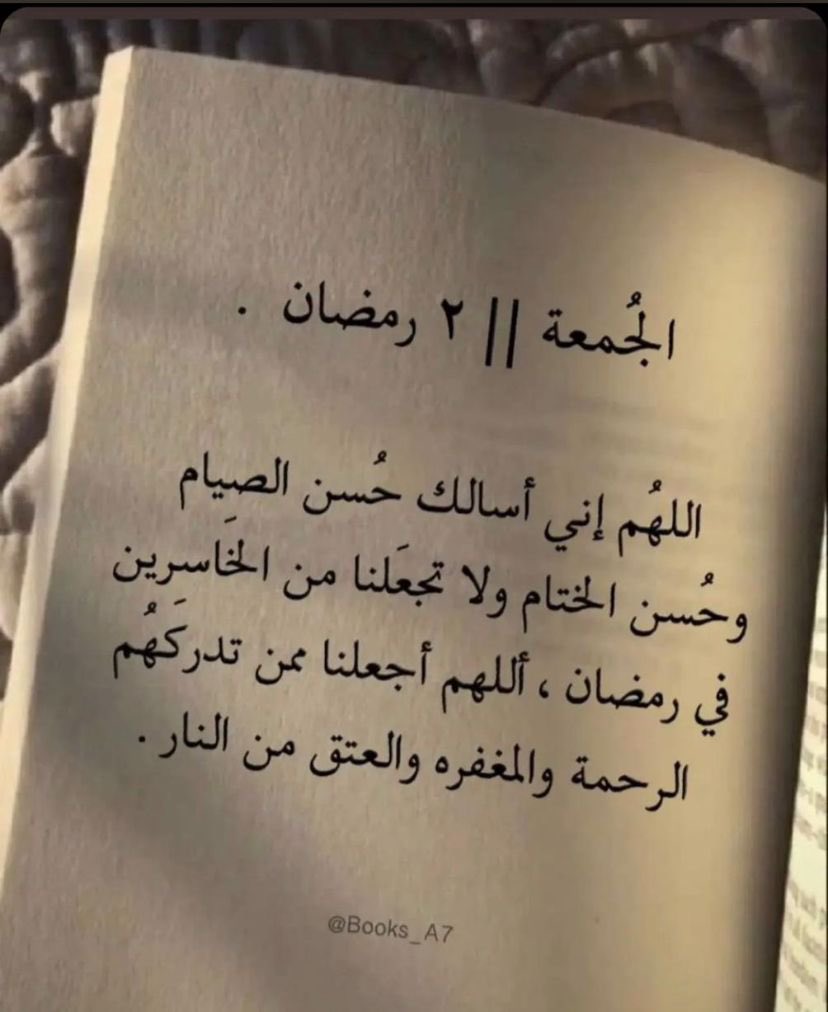 الجُمعة || ٢ رمضان .
اللهُم إني أسالك حُسن الصيام
وحُسن الختام ولا تجعَلنا من الخَاسرين
في رمضان ، أللهم أجعلنا ممن تدركَهُم
الرحمة والمغفره والعتق من النار .
@Books_A7